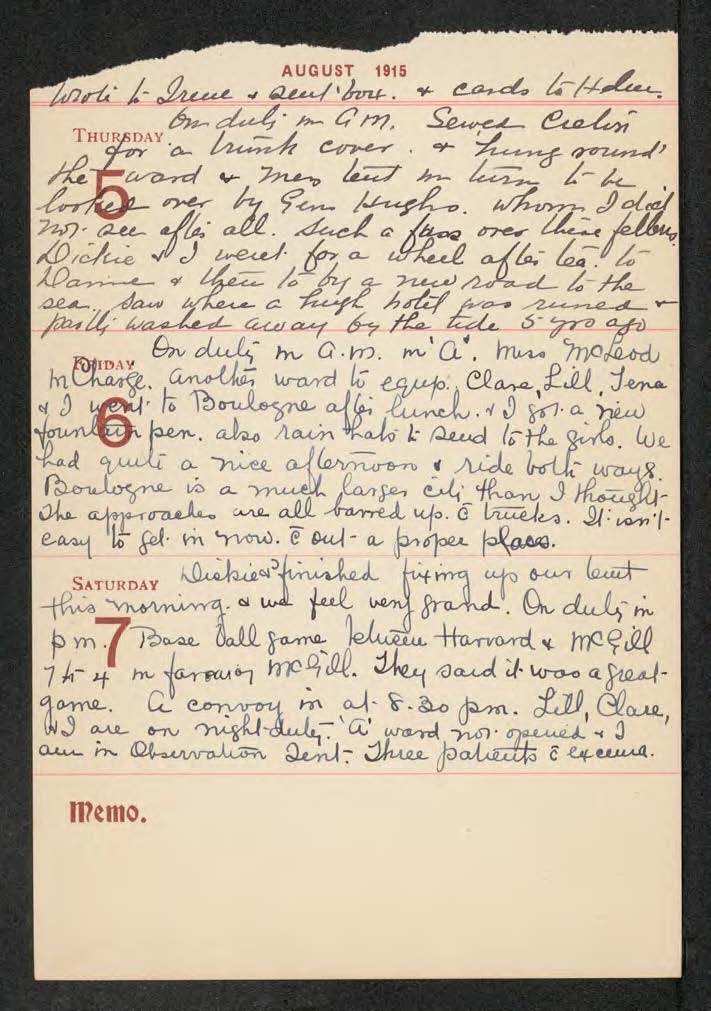 AUGUST 1915
Wrote to Irene & sent box. & cards to Helen.
On duty in A.M. Sewed Creton
THURSDAY
for a trunk cover. & hung round
5
the ward & mess tent in turn to be
looked over by Gen Hughs. whom I did
not see after all. Such a fuss over these fellows.
Dickie & I went for a wheel after tea. to
Dannes & then to by a new road to the
sea. Saw where a hugh hotel was ruined &
partly washed away by the tide 5 yrs ago
On duty in A.M. in 'A'. Miss McLeod
FRIDAY
in Charge. Another ward to equip. Clare, Lill, Tena
6
& I went to Boulogne after lunch. & I got a new
fountain pen. also rain hats to send to the girls. We
had quite a nice afternoon & ride both ways.
Boulogne is a much larger city than I thought.
The approaches are all barred up. c̄ trucks. It isn't
easy to get in now. c̄ out a proper pass.
Dickie & I finished fixing up our tent
SATURDAY
this morning. & we feel very grand. On duty in
7
p m. Base Ball game between Harvard & McGill
7 to 4 in favour McGill. They said it was a great
game. A convoy in at 8.30 pm. Lill, Clare,
& I are on night duty. 'A' ward not opened & I
am in Observation Tent. Three patients c̄ excema.
Memo.